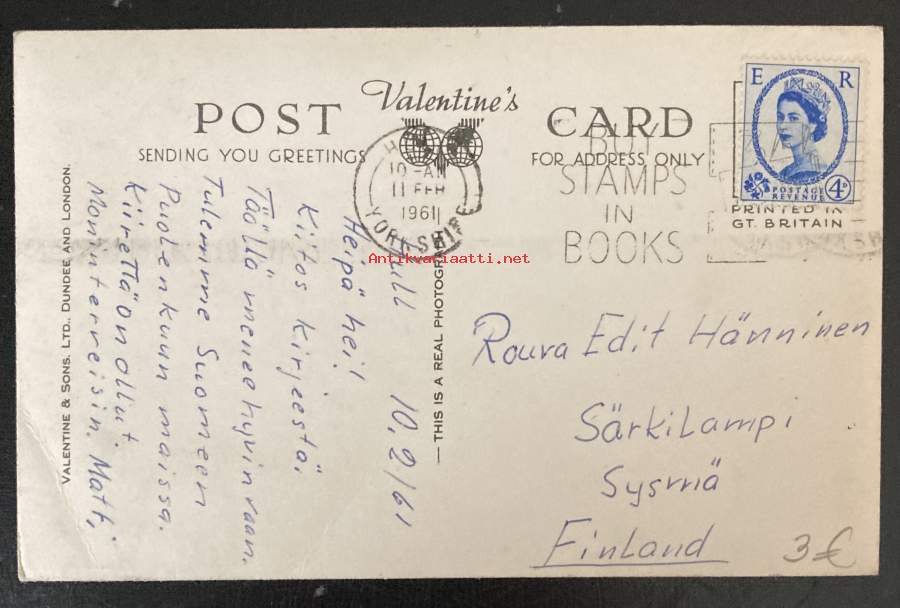 POST
Valentine's
CARD
SENDING YOU GREETINGS
FOR ADDRESS ONLY
E R
POSTAGE
REVENUE
4D
PRINTED IN
GT. BRITAIN
10-AM
11 FEB
1961
YORKSHIRE
BUY
STAMPS
IN
BOOKS
VALENTINE & SONS. LTD., DUNDEE AND LONDON.
— THIS IS A REAL PHOTOGR
Antikvariaatti.net
Hull 10.2/61
Heipä hei!
Kiitos kirjeestä.
Täällä menee hyvin vaan.
Tulemme Suomeen
Puolenkuun maissa.
Kiirettä on ollut.
Monin terveisin. Matti
Rouva Edit Hänninen
Särkilampi
Sysmä
Finland
3€